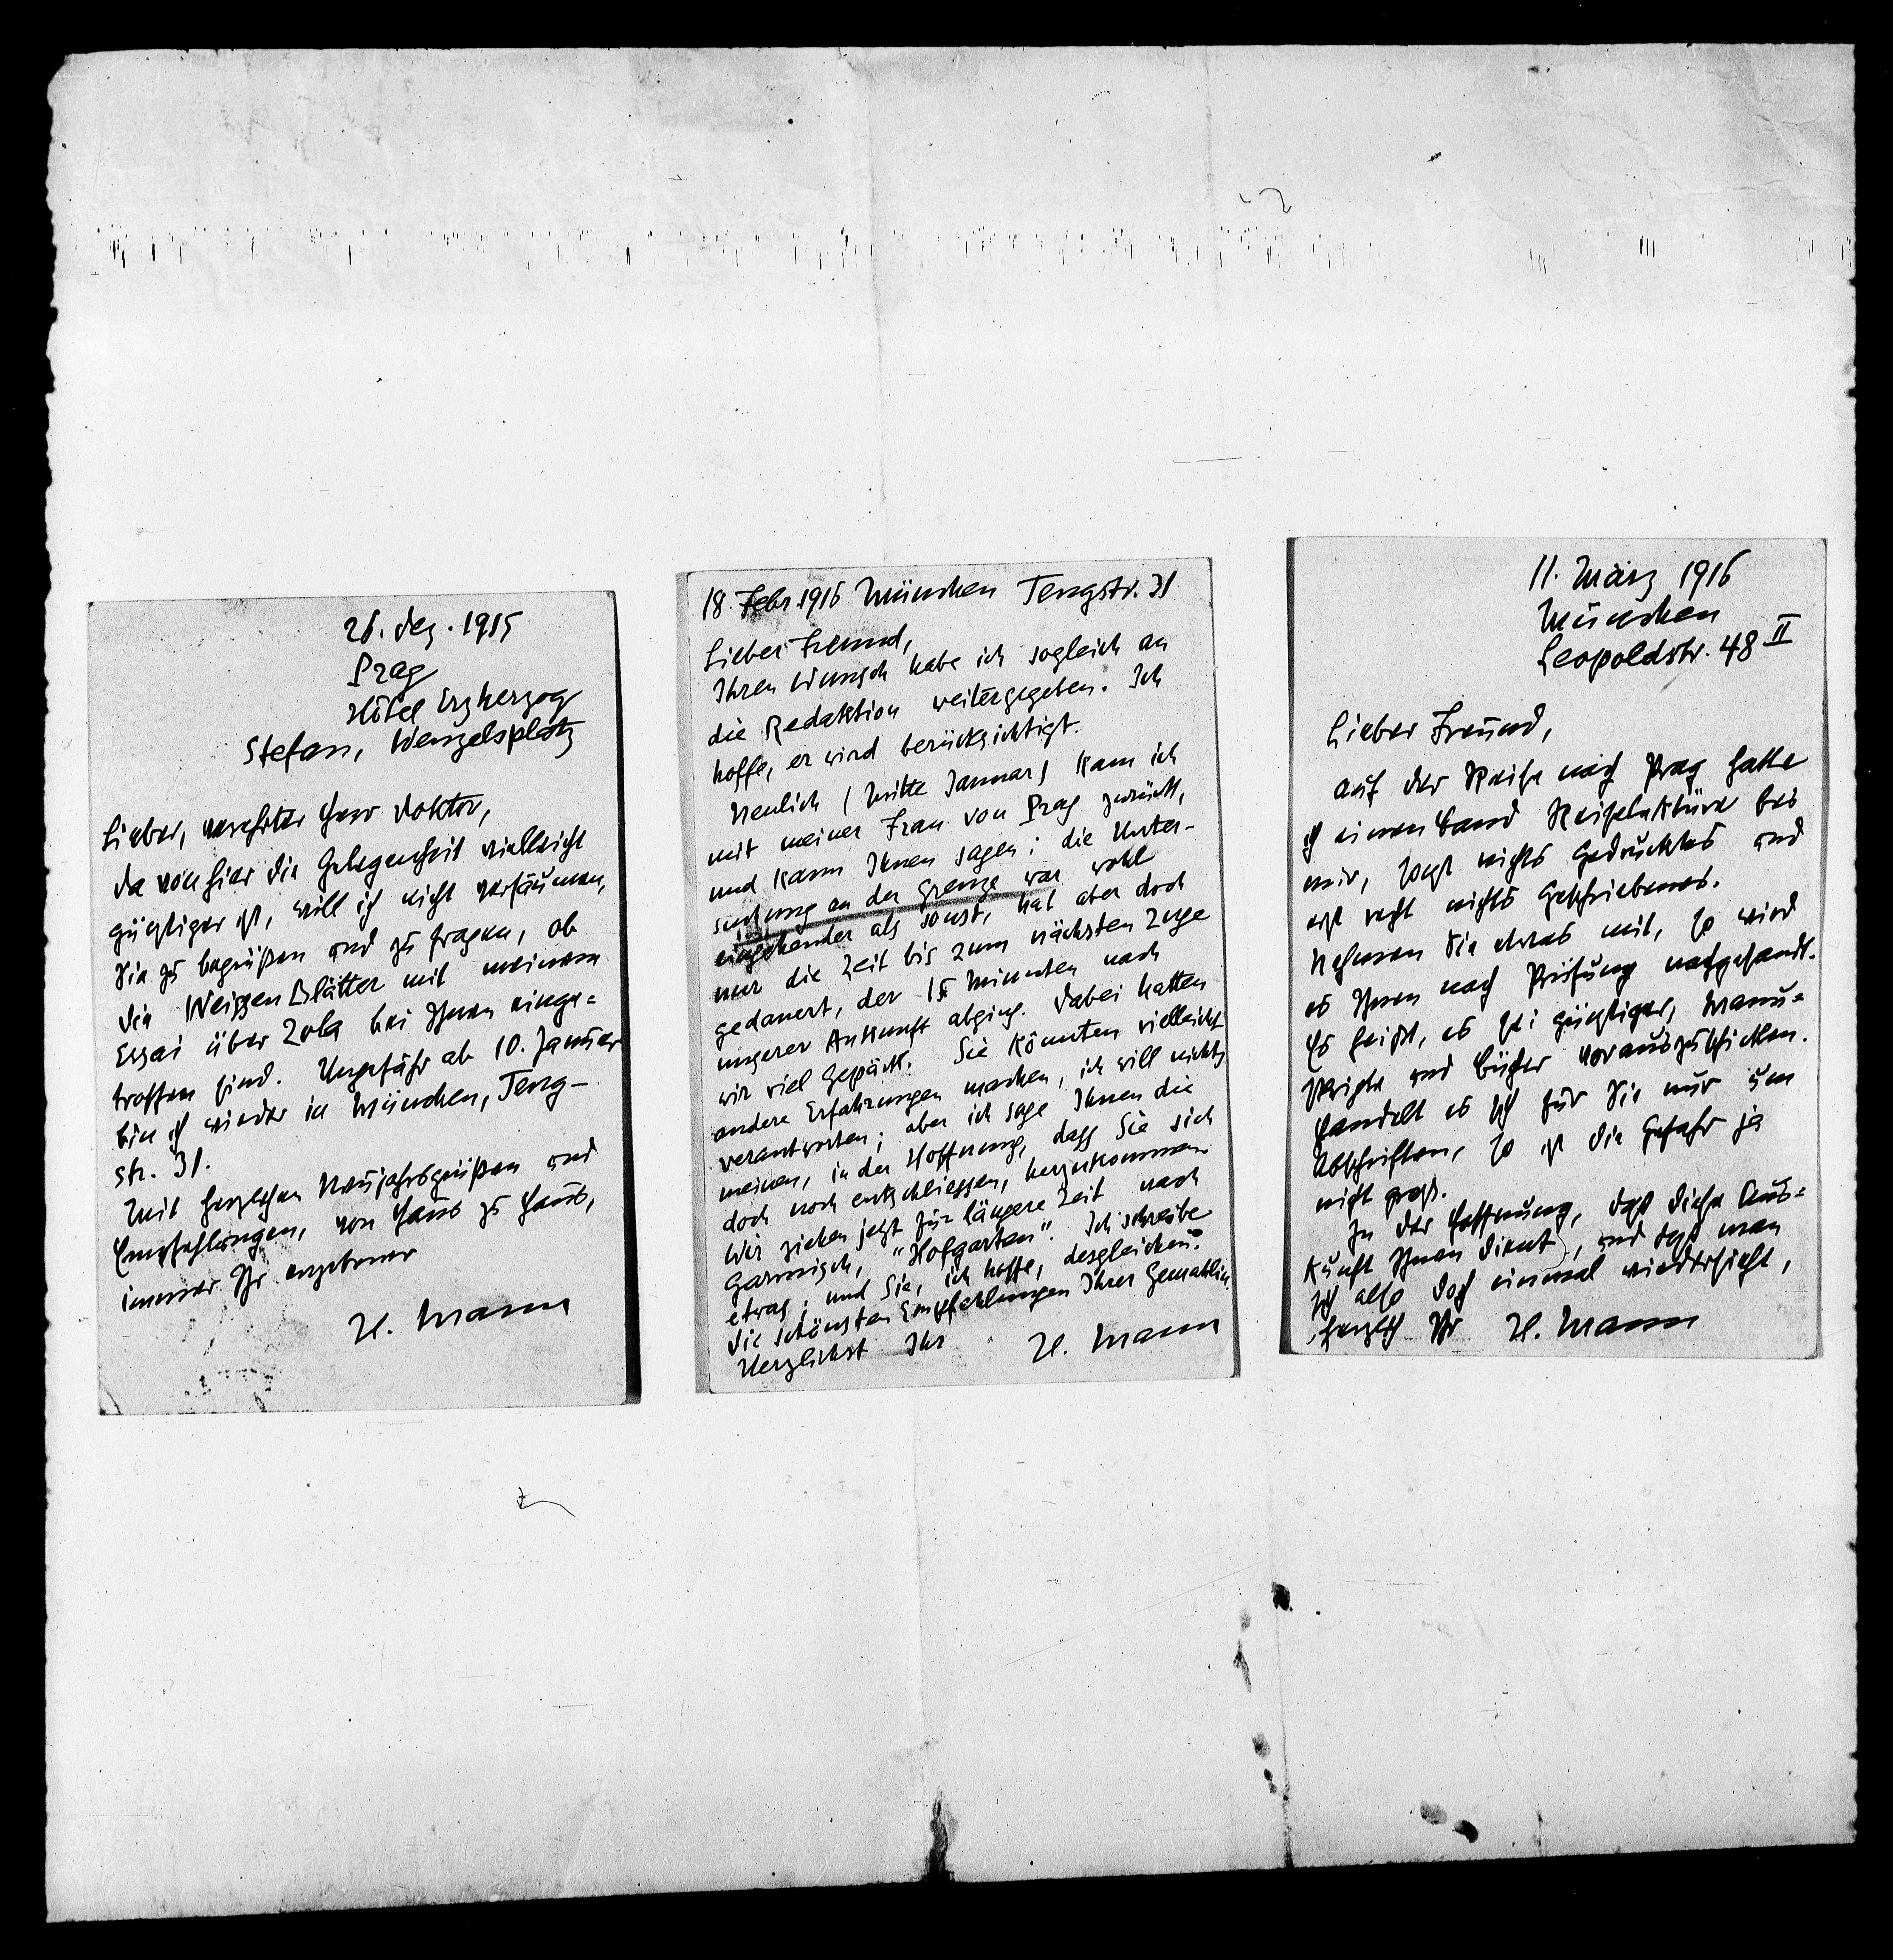 26. Dez. 1915
Prag
Hôtel Erzherzog
Stefan, Wenzelsplatz
Lieber, verehrter Herr Doktor,
da von hier die Gelegenheit vielleicht
günstiger ist, will ich nicht versäumen,
Sie zu begrüßen und zu fragen, ob
die Weissen Blätter mit meinem
Essai über Zola bei Ihnen einge=
troffen sind. Ungefähr ab 10. Januar
bin ich wieder in München, Teng–
str. 31.
Mit herzlichen Neujahrsgrüßen und
Empfehlungen, von Haus zu Haus,
immer Ihr ergebener
H. Mann
18. Febr. 1916 München Tengstr. 31
Lieber Freund,
Ihren Wunsch habe ich sogleich an
die Redaktion weitergegeben. Ich
hoffe, er wird berücksichtigt.
Neulich (Mitte Januar) kam ich
mit meiner Frau von Prag zurück,
und kann Ihnen sagen: die Unter-
suchung an der Grenze war wohl
eingehender als sonst, hat aber doch
nur die Zeit bis zum nächsten Zuge
gedauert, der 15 Minuten nach
unserer Ankunft abging. Dabei hatten
wir viel Gepäck. Sie könnten vielleicht
andere Erfahrungen machen, ich will nichts
verantworten; aber ich sage Ihnen die
meinen, in der Hoffnung, dass Sie sich
doch noch entschliessen, herzukommen.
Wir ziehen jetzt für längere Zeit nach
Garmisch, "Hofgarten". Ich schreibe
etwas; und Sie, ich hoffe, desgleichen.
Die schönsten Empfehlungen Ihrer Gemahlin.
Herzlichst Ihr H. Mann
11. März 1916
München
Leopoldstr. 48 II
Lieber Freund,
auf der Reise nach Prag hatte
ich einen Band Reiselektüre bei
mir, sonst nichts Gedrucktes und
erst recht nichts Geschriebenes.
Nehmen Sie etwas mit, so wird
es Ihnen nach Prüfung nachgesandt.
Es heißt, es sei günstiger, Manu=
skripte und Bücher vorauszuschicken.
Handelt es sich für Sie nur um
Abschriften, so ist die Gefahr ja
nicht groß.
In der Hoffnung, daß diese Aus=
kunft Ihnen dient, und daß man
sich also doch einmal wiedersieht,
herzlich Ihr H. Mann